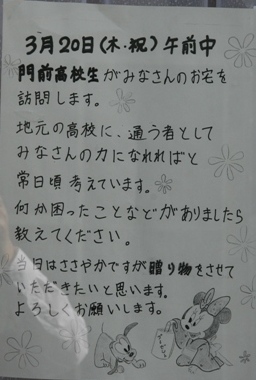 3月20日(木・祝)午前中
門前高校生がみなさんのお宅を
訪問します。
地元の高校に、通う者として
みなさんの力になれればと
常日頃 考えています。
何か困ったことなどがありましたら
教えてください。
当日はささやかですが贈り物をさせて
いただきたいと思います。
よろしくお願いします。